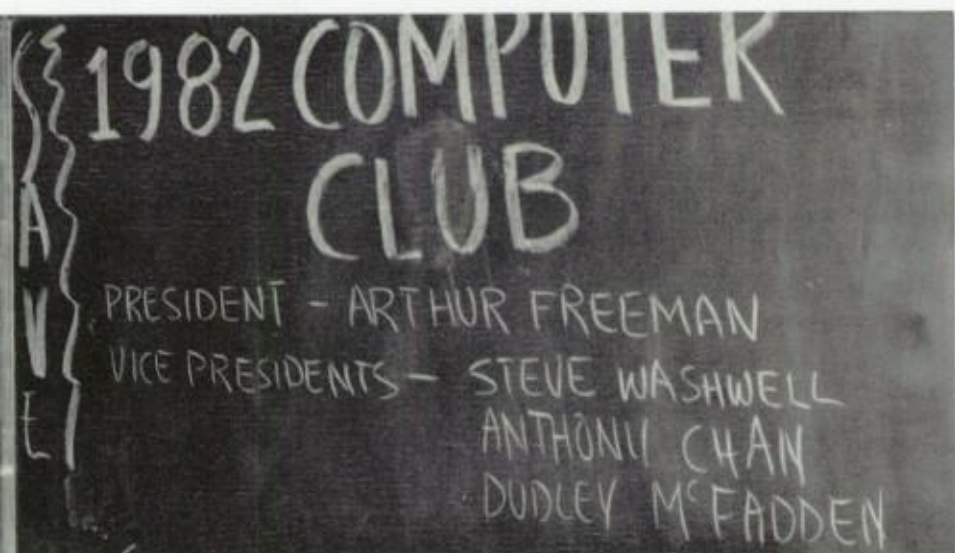 SAVE
1982 COMPUTER
CLUB
PRESIDENT - ARTHUR FREEMAN
VICE PRESIDENTS - STEVE WASHWELL
ANTHONY CHAN
DUDLEY McFADDEN